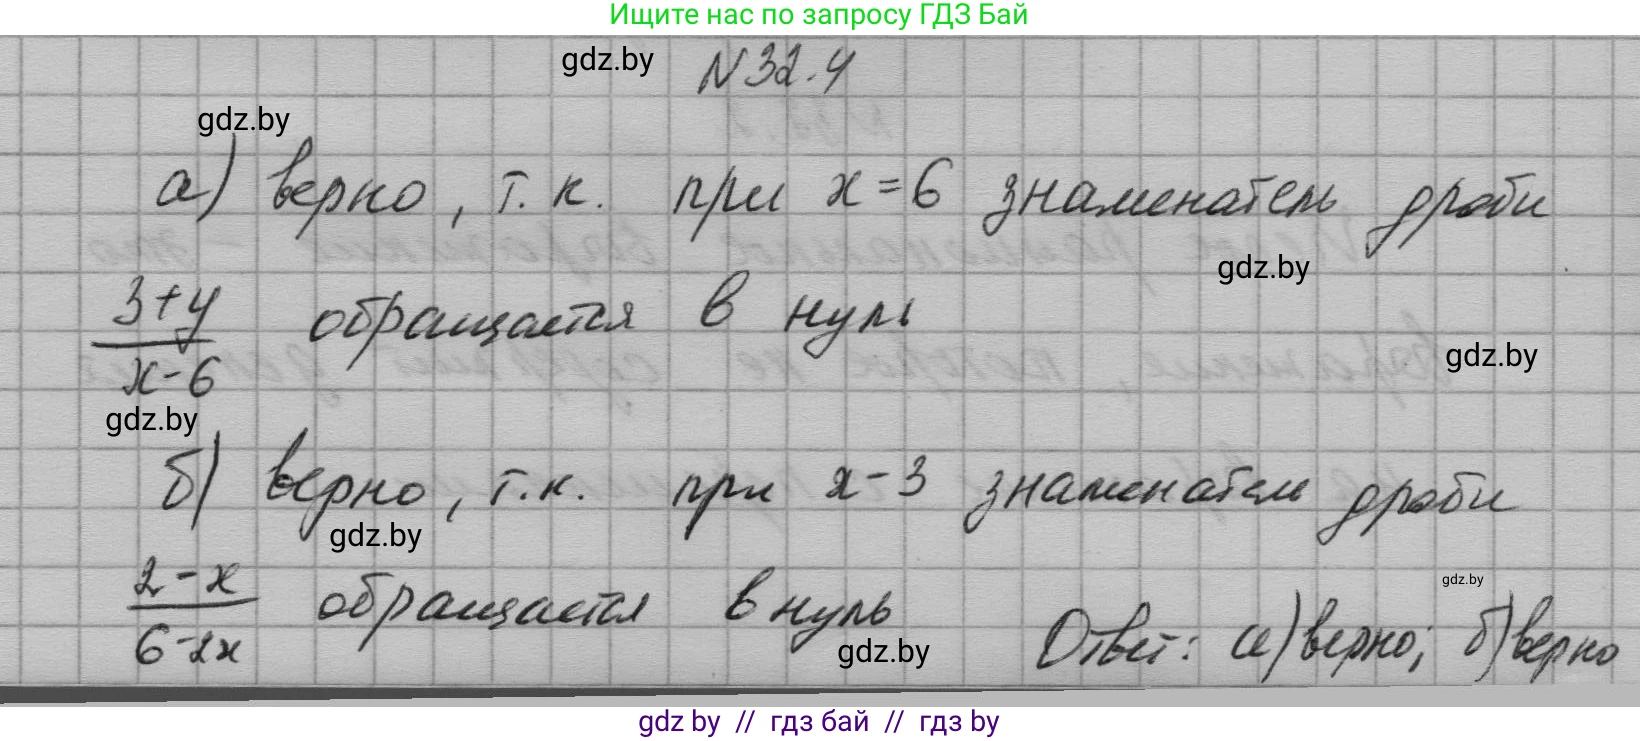 Ищите нас по запросу ГДЗ Бай
gdz.by
N32.4
gdz.by
а) верно, т.к. при x=6 знаменатель дроби
gdz.by
3+y
x-6
обращается в нуль
gdz.by
gdz.by
б) верно, т.к. при x-3 знаменатель дроби
gdz.by
2-x
6-2x
обращается в нуль
gdz.by
gdz.by
Ответ: а) верно; б) верно
gdz.by // гдз бай // гдз by